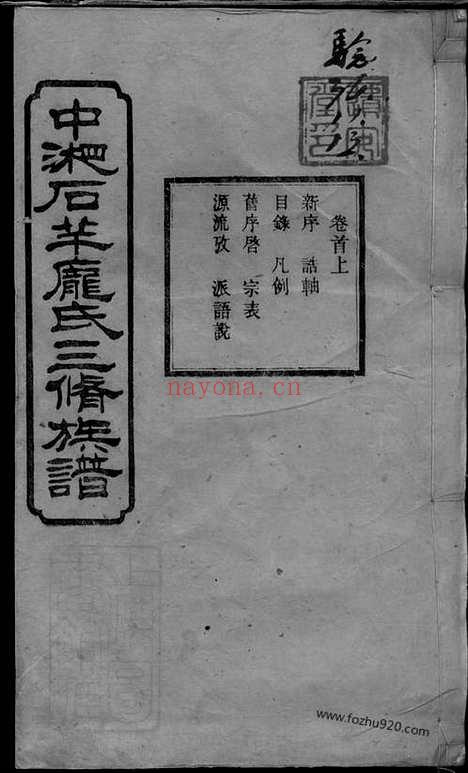 中湘石羊龐氏三脩族譜
卷首上
新序 誥軸
目錄 凡例
舊序啓 宗表
源流攷 派語說
nayona.cn
www.fozhu920.com